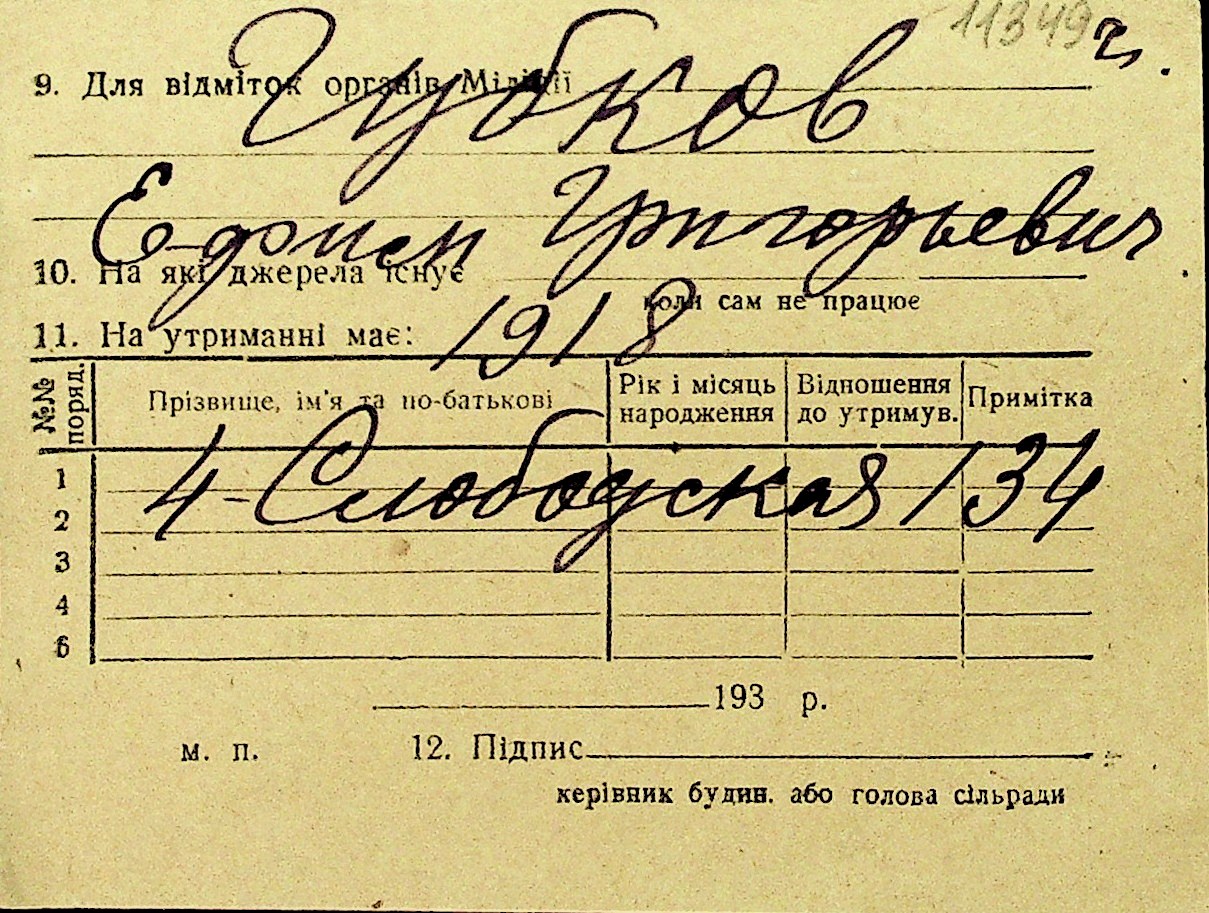 11349 г.
9. Для відміток органів Міліції
Губков
Григорьевич
10. На які джерела існує
коли сам не працює
11. На утриманні має:
1918
№№ поряд.
Прізвище, ім'я та по-батькові
Рік і місяць народження
Відношення до утримув.
Примітка
4-Слободская 134
1
2
3
4
5
193 р.
м. п. 12. Підпис
керівник будин. або голова сільради